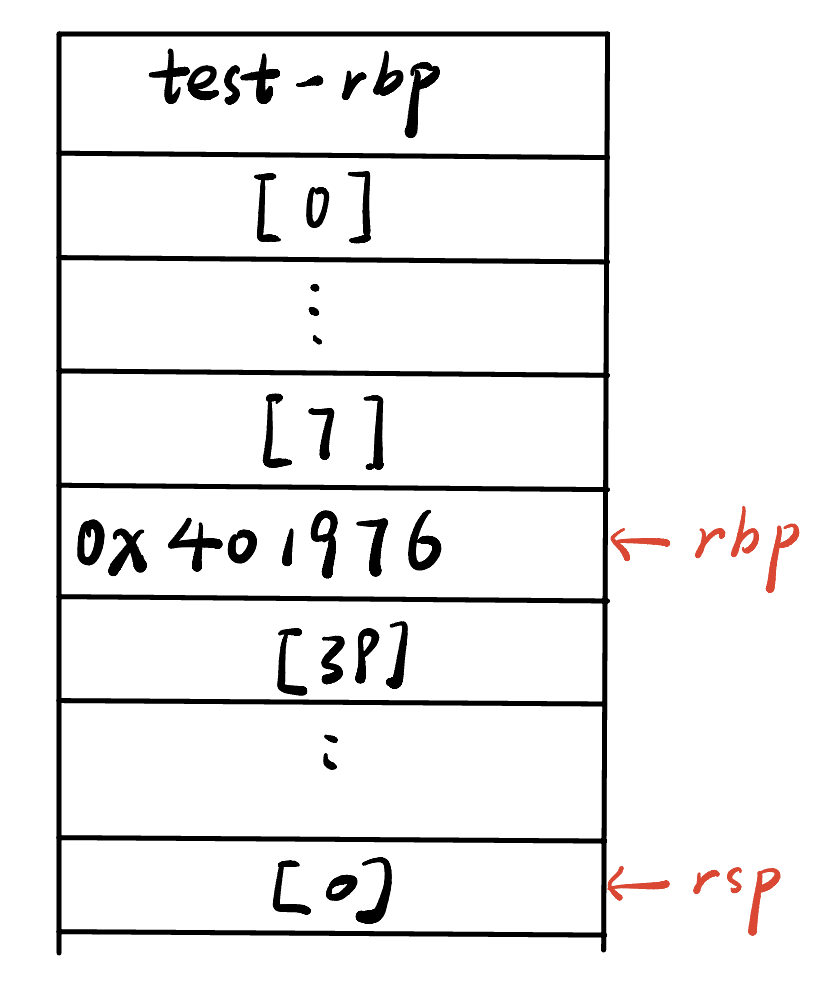 test-rbp
[0]
⋮
[7]
0x401976 ← rbp
[39]
⋮
[0] ← rsp